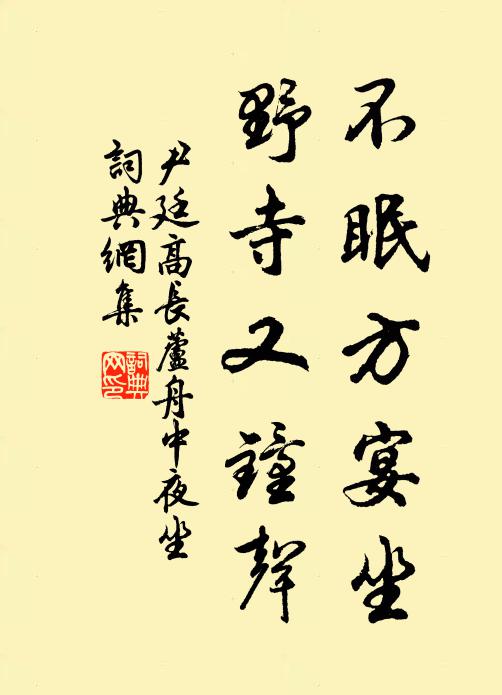 不眠方宴坐
野寺又鐘聲
尹廷高長蘆舟中夜坐
詞典網集
詞典网印